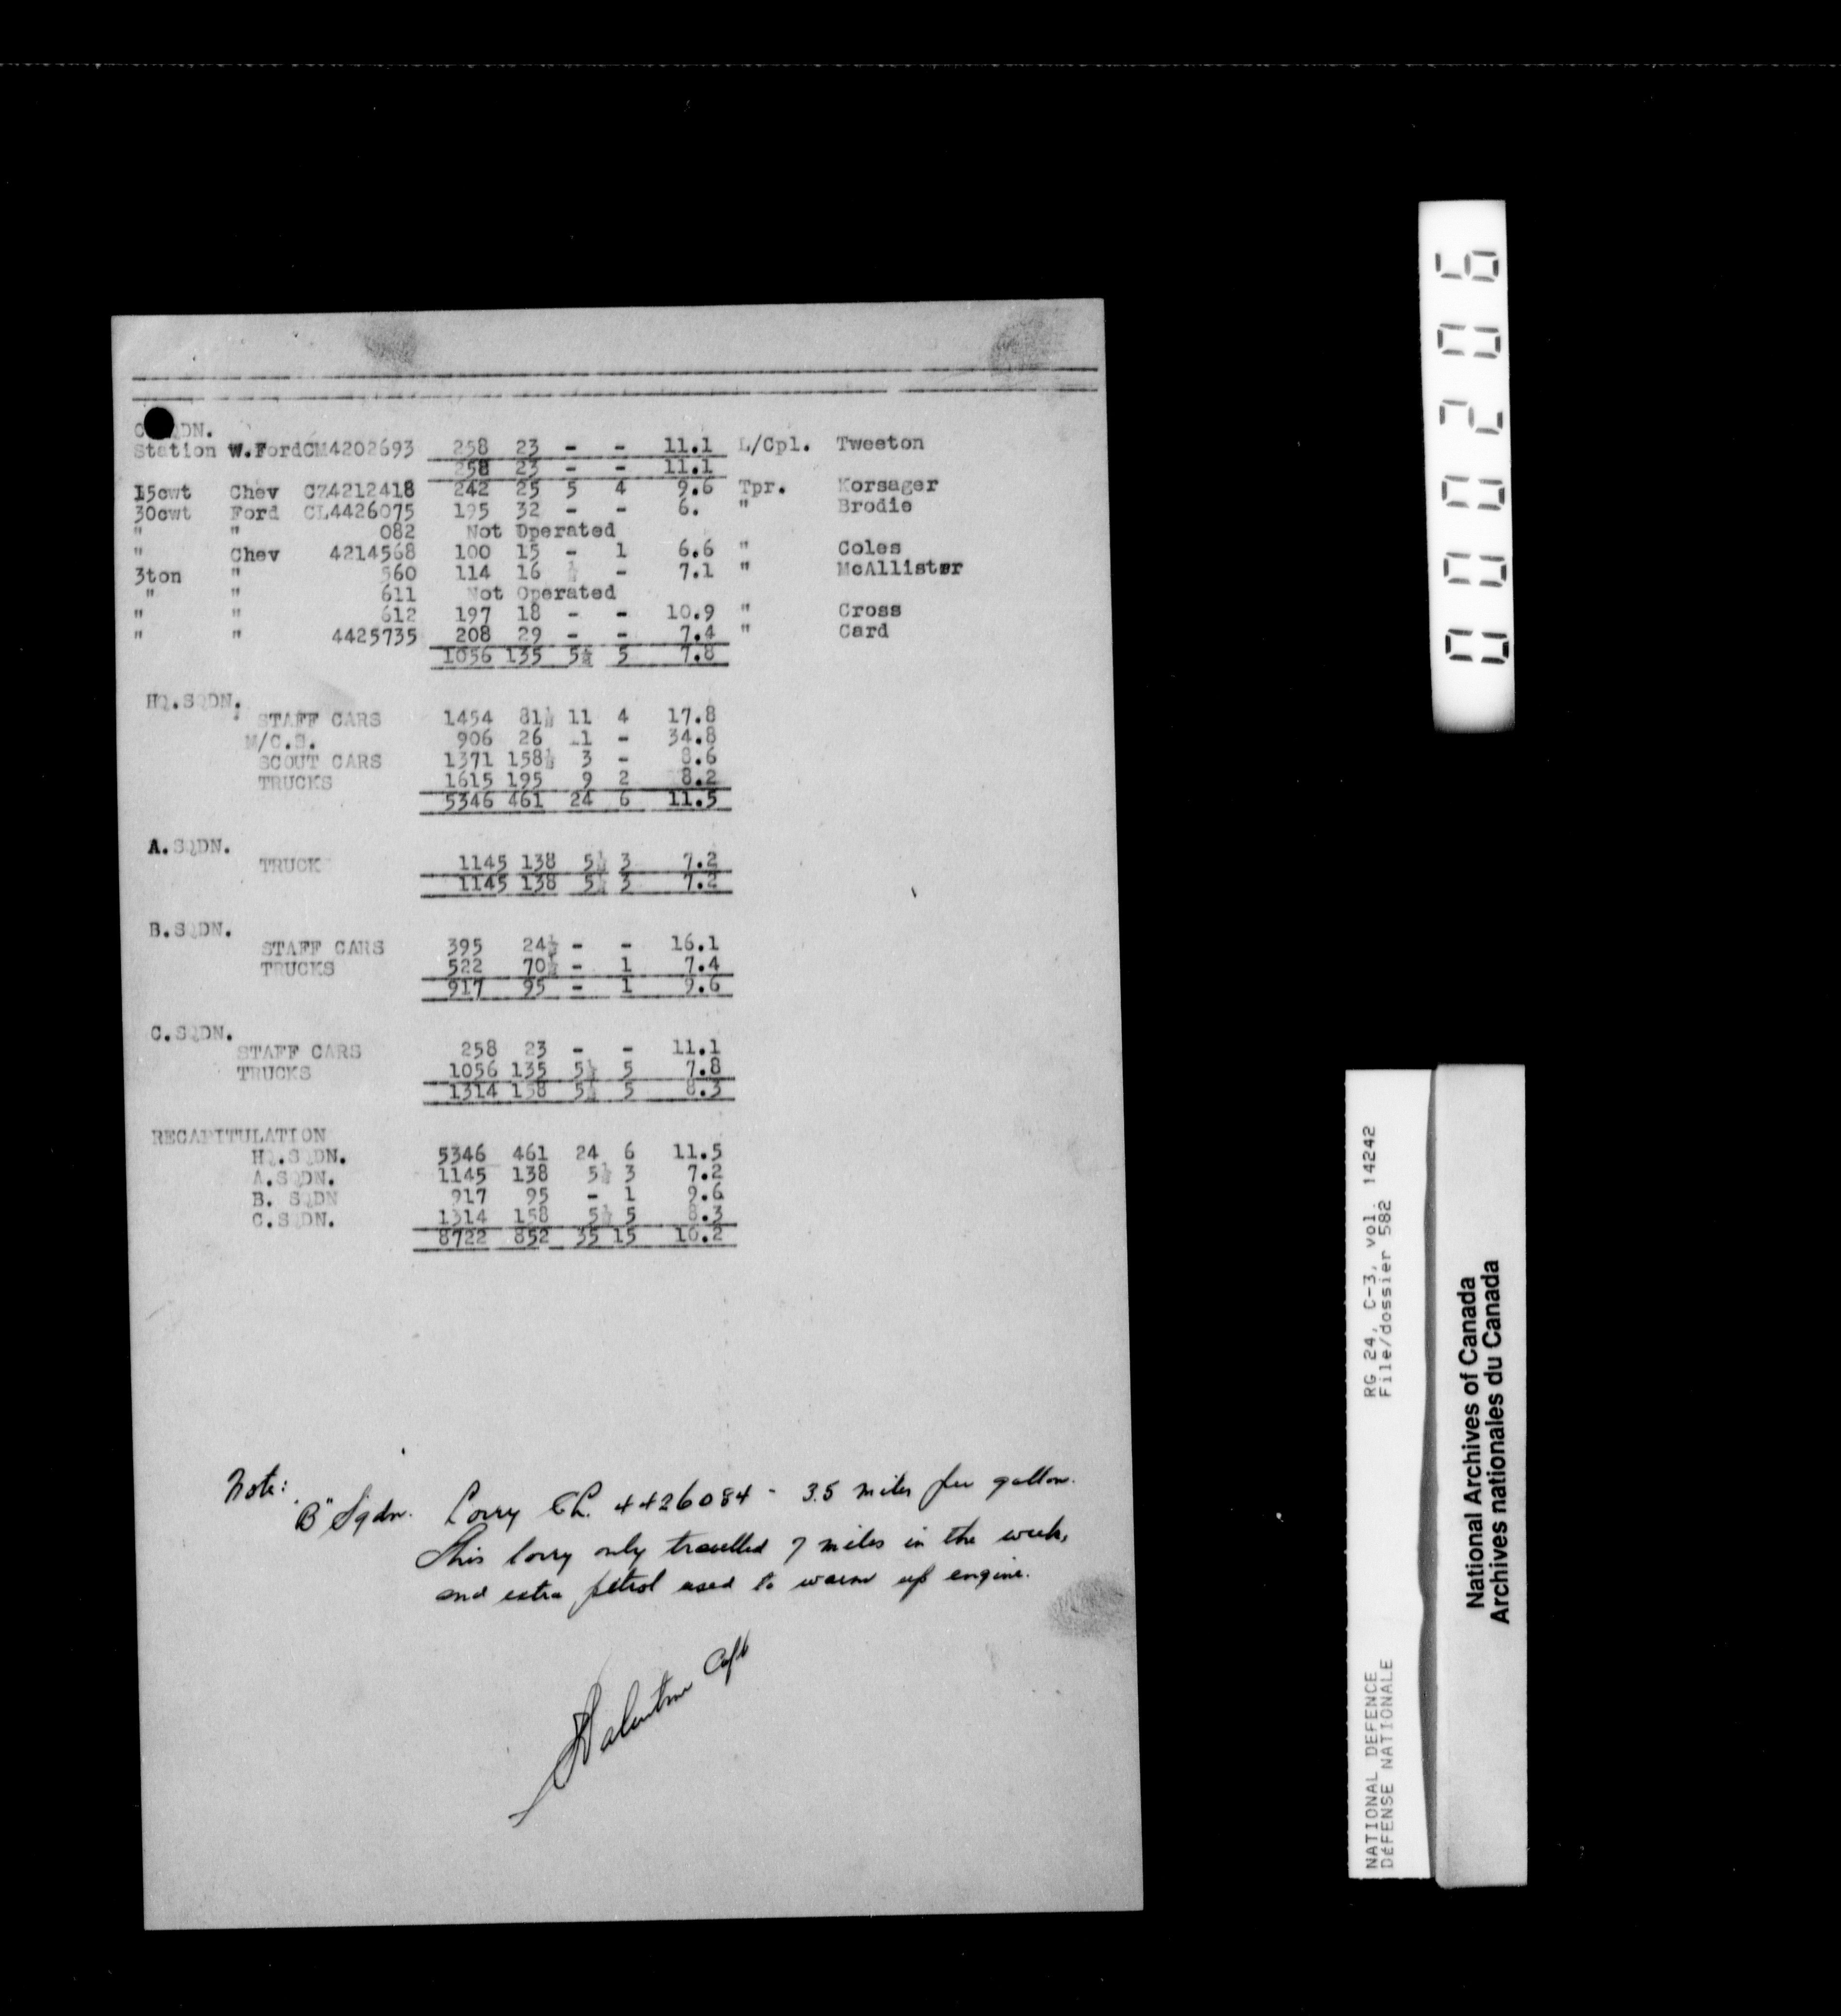 C.SQDN.
Station W.FordCM4202693 258 23 - - 11.1 L/Cpl. Tweeton
258 23 - - 11.1
15cwt Chev CZ4212418 242 25 5 4 9.6 Tpr. Korsager
30cwt Ford CL4426075 195 32 - - 6. " Brodie
" " 082 Not Operated
" Chev 4214568 100 15 - 1 6.6 " Coles
3ton " 560 114 16 ½ - 7.1 " McAllister
" " 611 Not Operated
" " 612 197 18 - - 10.9 " Cross
" " 4425735 208 29 - - 7.4 " Card
1056 135 5½ 5 7.8
HQ.SQDN.
STAFF CARS 1454 81½ 11 4 17.8
M/C.S. 906 26 1 - 34.8
SCOUT CARS 1371 158½ 3 - 8.6
TRUCKS 1615 195 9 2 8.2
5346 461 24 6 11.5
A.SQDN.
TRUCK 1145 138 5½ 3 7.2
1145 138 5½ 3 7.2
B.SQDN.
STAFF CARS 395 24½ - - 16.1
TRUCKS 522 70½ - 1 7.4
917 95 - 1 9.6
C.SQDN.
STAFF CARS 258 23 - - 11.1
TRUCKS 1056 135 5½ 5 7.8
1314 158 5½ 5 8.3
RECAPITULATION
HQ.SQDN. 5346 461 24 6 11.5
A.SQDN. 1145 138 5½ 3 7.2
B. SQDN 917 95 - 1 9.6
C.SQDN. 1314 158 5½ 5 8.3
8722 852 35 15 10.2
Note:
"B" Sqdn. Lorry CL. 4426084 - 3.5 miles per gallon.
This lorry only travelled 7 miles in the week,
and extra petrol used to warm up engine.
Valentine Capt
000206
RG 24, C-3, vol. 14242
File/dossier 582
NATIONAL DEFENCE
DÉFENSE NATIONALE
National Archives of Canada
Archives nationales du Canada